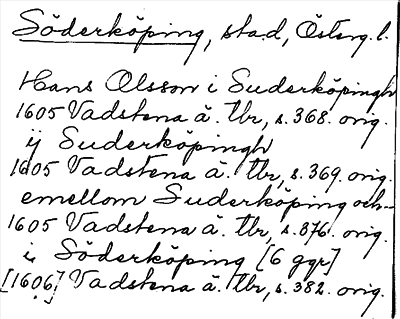 Söderköping, stad, Österg. l.
Hans Olsson i Suderköpingh
1605 Vadstena ä. tbr, s. 368. orig.
ij Suderköpingh
1605 Vadstena ä. tbr, s. 369. orig.
emellom Suderköping och-
1605 Vadstena ä. tbr, s. 376. orig.
i Söderköping [6 ggr]
[1606] Vadstena ä. tbr, s. 382. orig.